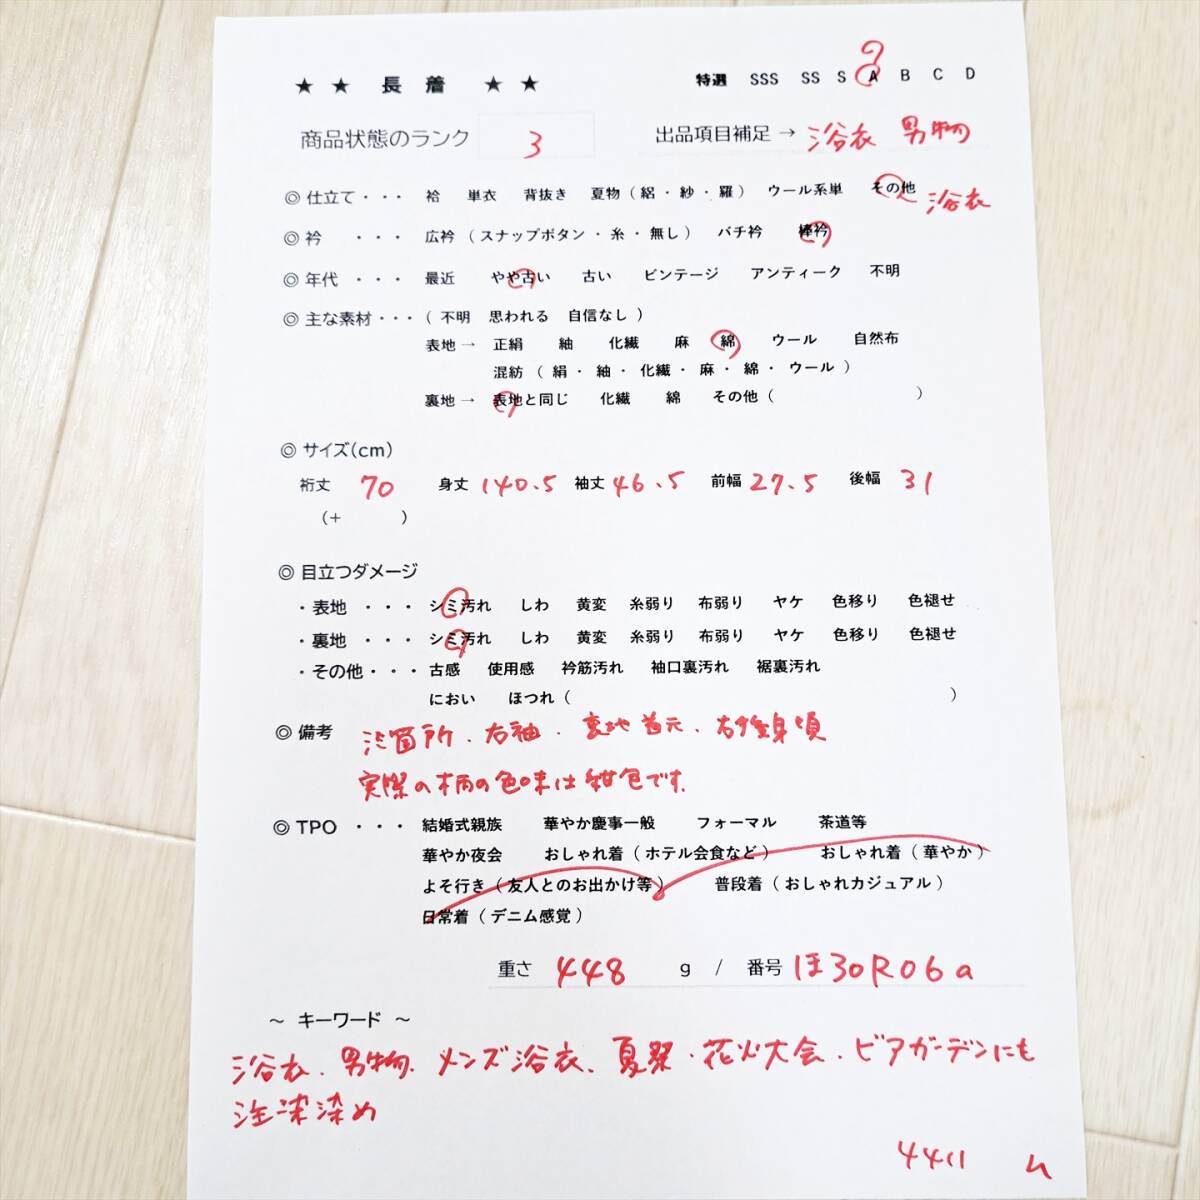 ★ ★ 長 着 ★ ★ 特選 SSS SS S A B C D
商品状態のランク 3 出品項目補足 → 浴衣 男物
◎ 仕立て・・・ 袷 単衣 背抜き 夏物(絽・紗・羅) ウール系単 その他 浴衣
◎ 衿 ・・・ 広衿(スナップボタン・糸・無し) バチ衿 棒衿
◎ 年代 ・・・ 最近 やや古い 古い ビンテージ アンティーク 不明
◎ 主な素材・・・(不明 思われる 自信なし)
表地→ 正絹 紬 化繊 麻 綿 ウール 自然布
混紡(絹・紬・化繊・麻・綿・ウール)
裏地→ 表地と同じ 化繊 綿 その他( )
◎ サイズ(cm)
裄丈 70 身丈 140.5 袖丈 46.5 前幅 27.5 後幅 31
(+ )
◎ 目立つダメージ
・表地 ・・・ シミ汚れ しわ 黄変 糸弱り 布弱り ヤケ 色移り 色褪せ
・裏地 ・・・ シミ汚れ しわ 黄変 糸弱り 布弱り ヤケ 色移り 色褪せ
・その他・・・ 古感 使用感 衿筋汚れ 袖口裏汚れ 裾裏汚れ
におい ほつれ( )
◎ 備考 箇所、右袖、裏地首元、右後身頃
実際の柄の色味は紺色です。
◎ TPO ・・・ 結婚式親族 華やか慶事一般 フォーマル 茶道等
華やか夜会 おしゃれ着(ホテル会食など) おしゃれ着(華やか)
よそ行き(友人とのお出かけ等) 普段着(おしゃれカジュアル)
日常着(デニム感覚)
重さ 448 g / 番号 ほ30R06a
～ キーワード ～
浴衣、男物、メンズ浴衣、夏祭、花火大会、ビアガーデンにも
注染染め
4411